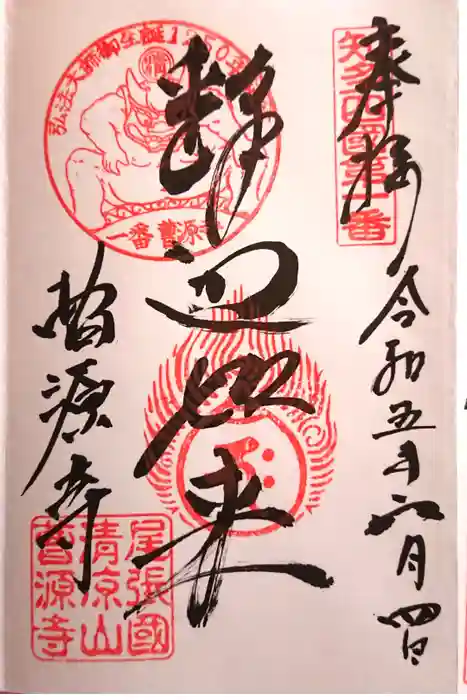 奉拝 令和五年六月四日
知多四國第一番
釋迦如来
弘法大師御生誕1250年
一番 曹源寺
曹源寺
尾張國
清凉山
曹源寺